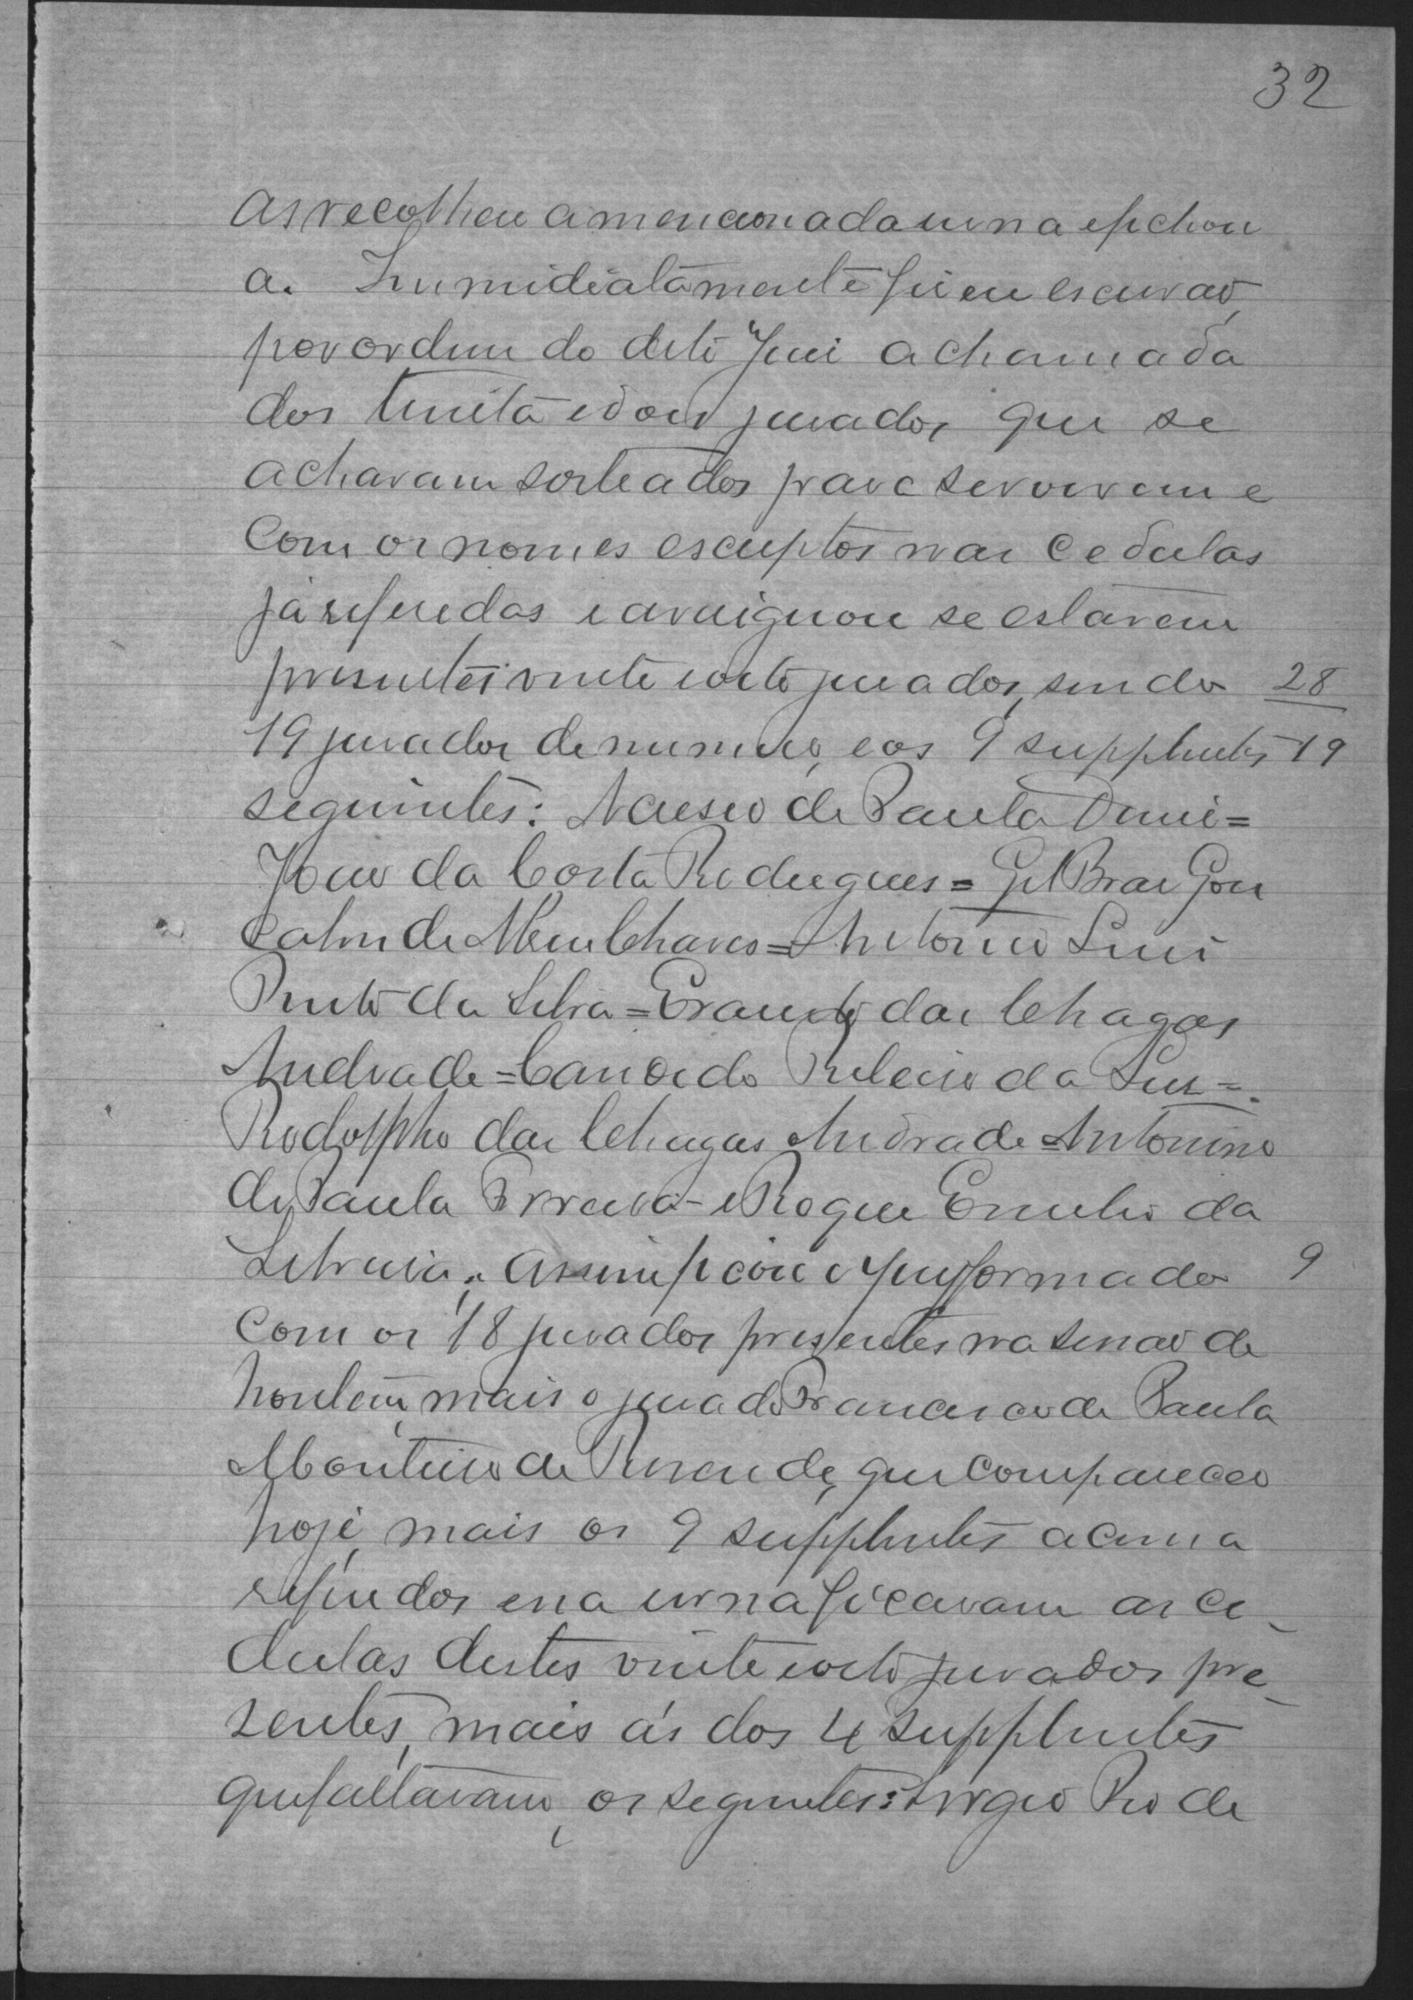 32
as recolheu a mencionada urna e fechou
a. Immidiatamente fis eu escrivaõ,
por ordem do dito Juiz a chamada
dos trinta e dous jurados que se
achavam sorteados para servirem e
com os nomes escriptos nas cedulas
já referidas e averiguou se estarem
presentes vinte e oito jurados, sendo 28
19 jurados de numero, e os 9 supplentes 19
seguintes: de Paula Diniz=
João da Costa Rodrigues = Gil Bras Gon
calves de Menchaves = Antonio Luis
Pinto da Silva = Erausto das Chagas
Andrade = Candido Ribeiro da Luz =
Rodolpho das Chagas Andrade = Antonino
de Paula Ferreira - e Roque Emilio da
Silveira; assim ficou o Jury formado 9
com os 18 jurados presentes na sessaõ de
hontem, mais o jurado Francisco de Paula
Monteiro de Resende, que compareceo
hoje, mais os 9 supplentes acima
referidos e na urna ficaram as ce
dulas destes vinte e oito jurados pre
zentes, mais ás dos 4 supplentes
que faltavam, os seguintes: Sergio Pio de